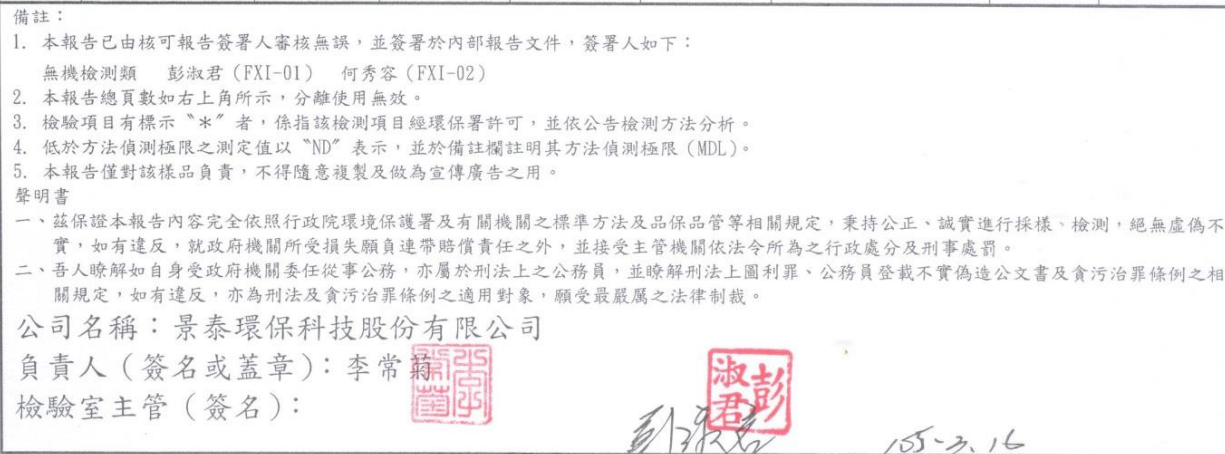 備註：
1. 本報告已由核可報告簽署人審核無誤，並簽署於內部報告文件，簽署人如下：
無機檢測類　彭淑君(FXI-01)　何秀容(FXI-02)
2. 本報告總頁數如右上角所示，分離使用無效。
3. 檢驗項目有標示〝*〞者，係指該檢測項目經環保署許可，並依公告檢測方法分析。
4. 低於方法偵測極限之測定值以〝ND〞表示，並於備註欄註明其方法偵測極限(MDL)。
5. 本報告僅對該樣品負責，不得隨意複製及做為宣傳廣告之用。
聲明書
一、茲保證本報告內容完全依照行政院環境保護署及有關機關之標準方法及品保品管等相關規定，秉持公正、誠實進行採樣、檢測，絕無虛偽不
實，如有違反，就政府機關所受損失願負連帶賠償責任之外，並接受主管機關依法令所為之行政處分及刑事處罰。
二、吾人瞭解如自身受政府機關委任從事公務，亦屬於刑法上之公務員，並瞭解刑法上圖利罪、公務員登載不實偽造公文書及貪污治罪條例之相
關規定，如有違反，亦為刑法及貪污治罪條例之適用對象，願受最嚴厲之法律制裁。
公司名稱：景泰環保科技股份有限公司
負責人（簽名或蓋章）：李常菊
檢驗室主管（簽名）：
彭淑君
彭淑君 105-3.16